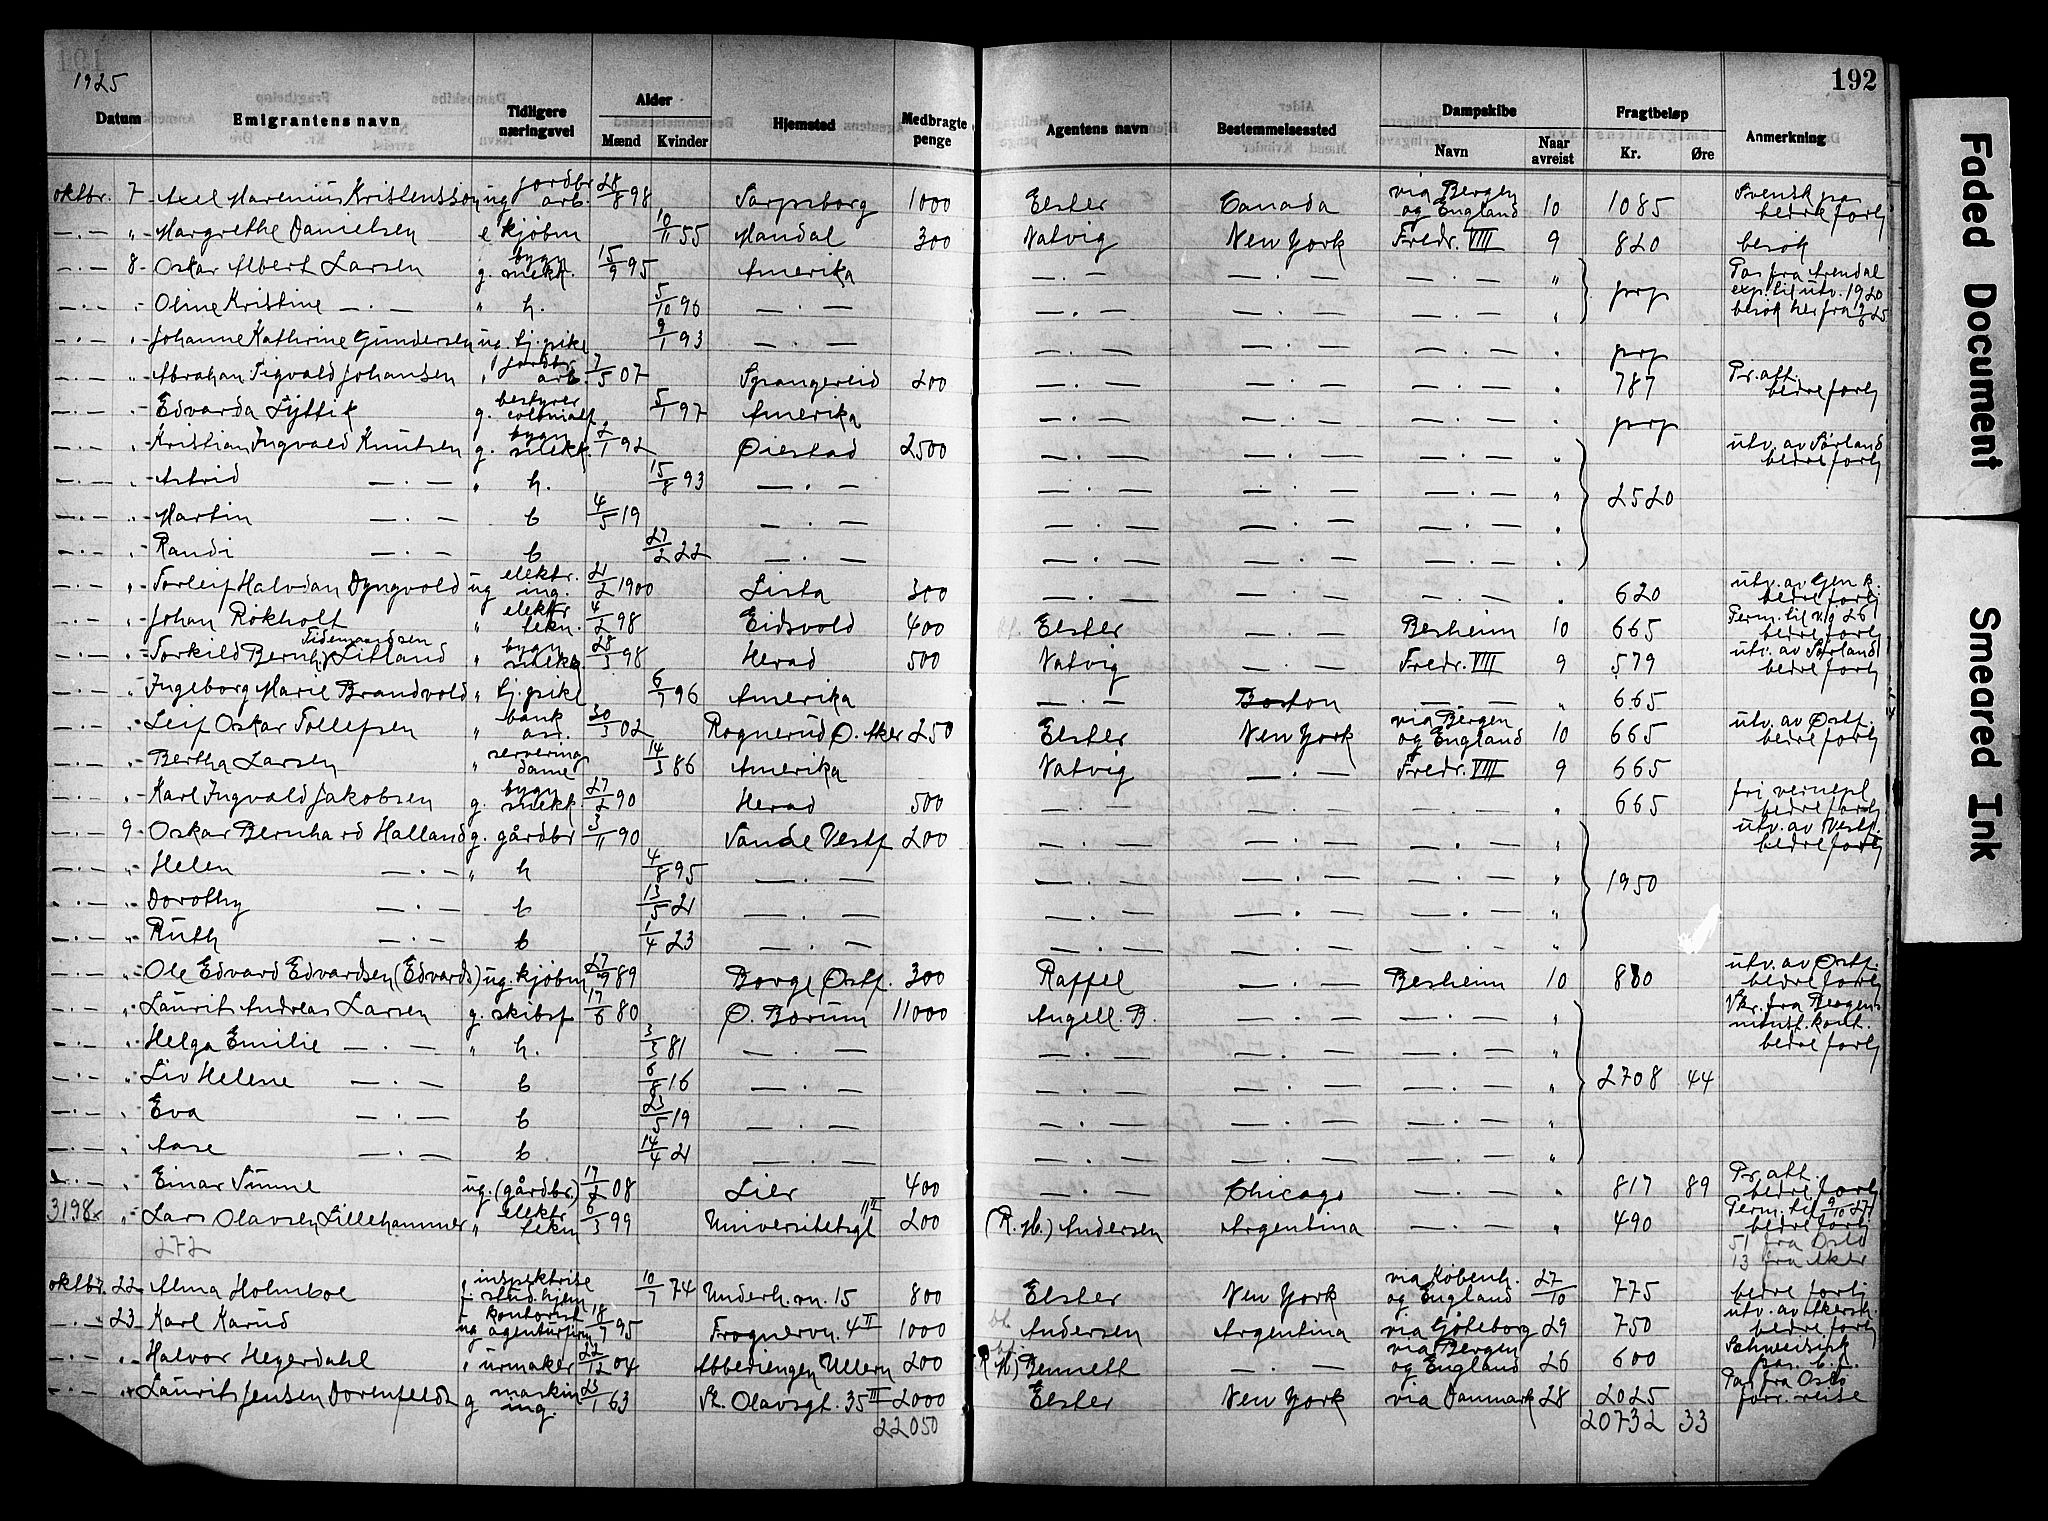 192
1925
Datum Emigrantens navn Tidligere næringsvei Alder Mænd Kvinder Hjemsted Medbragte penge Agentens navn Bestemmelsessted Dampskibe Navn Naar avreist Fragtbeløp Kr. Øre Anmerkning
oktbr. 7 Axel Marenius Kristensson ug jordbr. arb. 28/8 98 Sarpsborg 1000 Elster Canada via Bergen og England 10 1085 Svensk pas bedre forhj
—.— " Margrethe Danielsen e kjøbm 10/11 55 Mandal 300 Natvig New York Fredr. VIII 9 820 besøk
—.— 8 Oskar Albert Larsen g. bygn snekk. 15/9 95 Amerika —.— —.— —.— " prp Pas fra Arendal exp. til utv. 1920 besøk her fra
—.— " Oline Kristine —.— " h. 5/10 96 —.— —.— —.— —.— "
—.— " Johanne Kathrine Gundersen ug. tj.pike 9/1 93 —.— —.— —.— —.— " prp
—.— " Abrahan Sigvald Johansen " jordbr. arb. 7/5 07 Spangereid 200 —.— —.— —.— " 787 Pr.att. bedre forhj
—.— " Edvarda Lyttik g. bestyrer colonialf 5/1 97 Amerika —.— —.— —.— " prp
—.— " Kristian Ingvald Knutsen g. bygn snekk. 2/1 92 Øiestad 2500 —.— —.— —.— " utv. av Sørland bedre forhj
—.— " Astrid —.— " h. 15/8 93 —.— —.— —.— —.— " 2520
—.— " Martin —.— b 4/5 19 —.— —.— —.— —.— "
—.— " Randi —.— b 27/2 22 —.— —.— —.— —.— "
—.— " Torleif Halvdan Dyngvold ug elektr. ing. 21/2 1900 Lista 300 —.— —.— —.— " 620 utv. av Gen k. bedre forhj
—.— " Johan Rokholt " elektr tekn. 4/2 98 Eidsvold 400 Elster —.— Besheim 10 665 Perm. til bedre forhj
—.— " Torkild Bernh. Tidemandsen Litland " bygn snekk 28/3 98 Herad 500 Natvig —.— Fredr. VIII 9 579 utv. av Sørland bedre forhj
—.— " Ingeborg Marie Brandvold " tj.pike 6/7 96 Amerika —.— Boston —.— " 665
—.— " Leif Oskar Tollefsen " bank ass. 30/3 02 Rognerud Ø. Aker 250 Elster New York via Bergen og England 10 665 utv. av Østf. bedre forhj
—.— " Bertha Larsen " serverings dame 14/3 86 Amerika Natvig —.— Fredr. VIII 9 665
—.— " Karl Ingvald Jakobsen g. bygn snekk 27/2 90 Herad 500 —.— —.— —.— " 665 fri vernepl bedre forhj
—.— 9 Oskar Bernhard Halland g. gårdbr 3/11 90 Sande Vestf 200 —.— —.— —.— " utv. av Vestf. bedre forhj
—.— " Helen —.— " h 4/8 95 —.— —.— —.— —.— " 1950
—.— " Dorothy —.— b 13/5 21 —.— —.— —.— —.— "
—.— " Ruth —.— b 1/4 23 —.— —.— —.— —.— "
—.— " Ole Edvard Edvardsen (Edvards) ug. kjøbm 27/9 89 Borge Østf. 300 Raffel —.— Besheim 10 880 utv. av Østf. bedre forhj
—.— " Laurits Andreas Larsen g. skibsf 17/6 80 Ø. Bærum 11000 Angell. B. —.— —.— " Vkr. fra Bergens mønst. kont. bedre forhj
—.— " Helga Emilie —.— " h. 3/3 81 —.— —.— —.— —.— "
—.— " Liv Helene —.— b 6/8 16 —.— —.— —.— —.— " 2708 44
—.— " Eva —.— b 23/5 19 —.— —.— —.— —.— "
—.— " Aase —.— b. 14/4 21 —.— —.— —.— —.— "
—.— " Einar Simne ug. (gårdbr) 17/2 08 Lier 400 —.— Chicago —.— " 817 89 Pr.att. bedre forhj
3198x " Lars Olavsen Lillehammer " elektr tekn 6/3 99 Universitetsgt 11 II 200 (R. M.) Andersen Argentina —.— " 490 Perm. til 9/10 27 bedre forhj
272 51 fra Oslo
13 fra Aker
oktbr. 22 Alma Holmboe f. inspektrise stud.hjem 10/7 74 Underh.vn. 15 800 Elster New York via Københ. og England 27/10 775 bedre forhj
—.— 23 Karl Karud ug kontorist agenturfirm 18/7 95 Frognervn. 4 II 1000 Andersen Argentina via Göteborg 29 750 utv. av Akersh. bedre forhj
—.— " Halvor Hegerdahl " urmaker 22/12 04 Abbediengen Ullern 200 (R. M.) Bennett —.— via Bergen og England 26 600 Schweizisk pas. b.f.
—.— " Laurits Jensen Dorenfeldt g maskin ing. 23/1 63 St. Olavsgt. 35 III 2000 Elster New York via Danmark 28 2025 Pas fra Oslo forr. reise
22050 20732 33
Faded Document
Smeared Ink